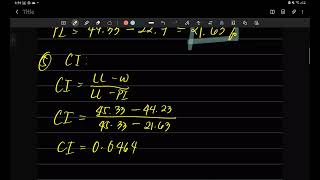 Title
PL = 44.33 - 22.7 = 21.63%
⑤ CI:
CI = LL - W / LL - PI
CI = 45.33 - 44.23 / 45.33 - 21.63
CI = 0.0464